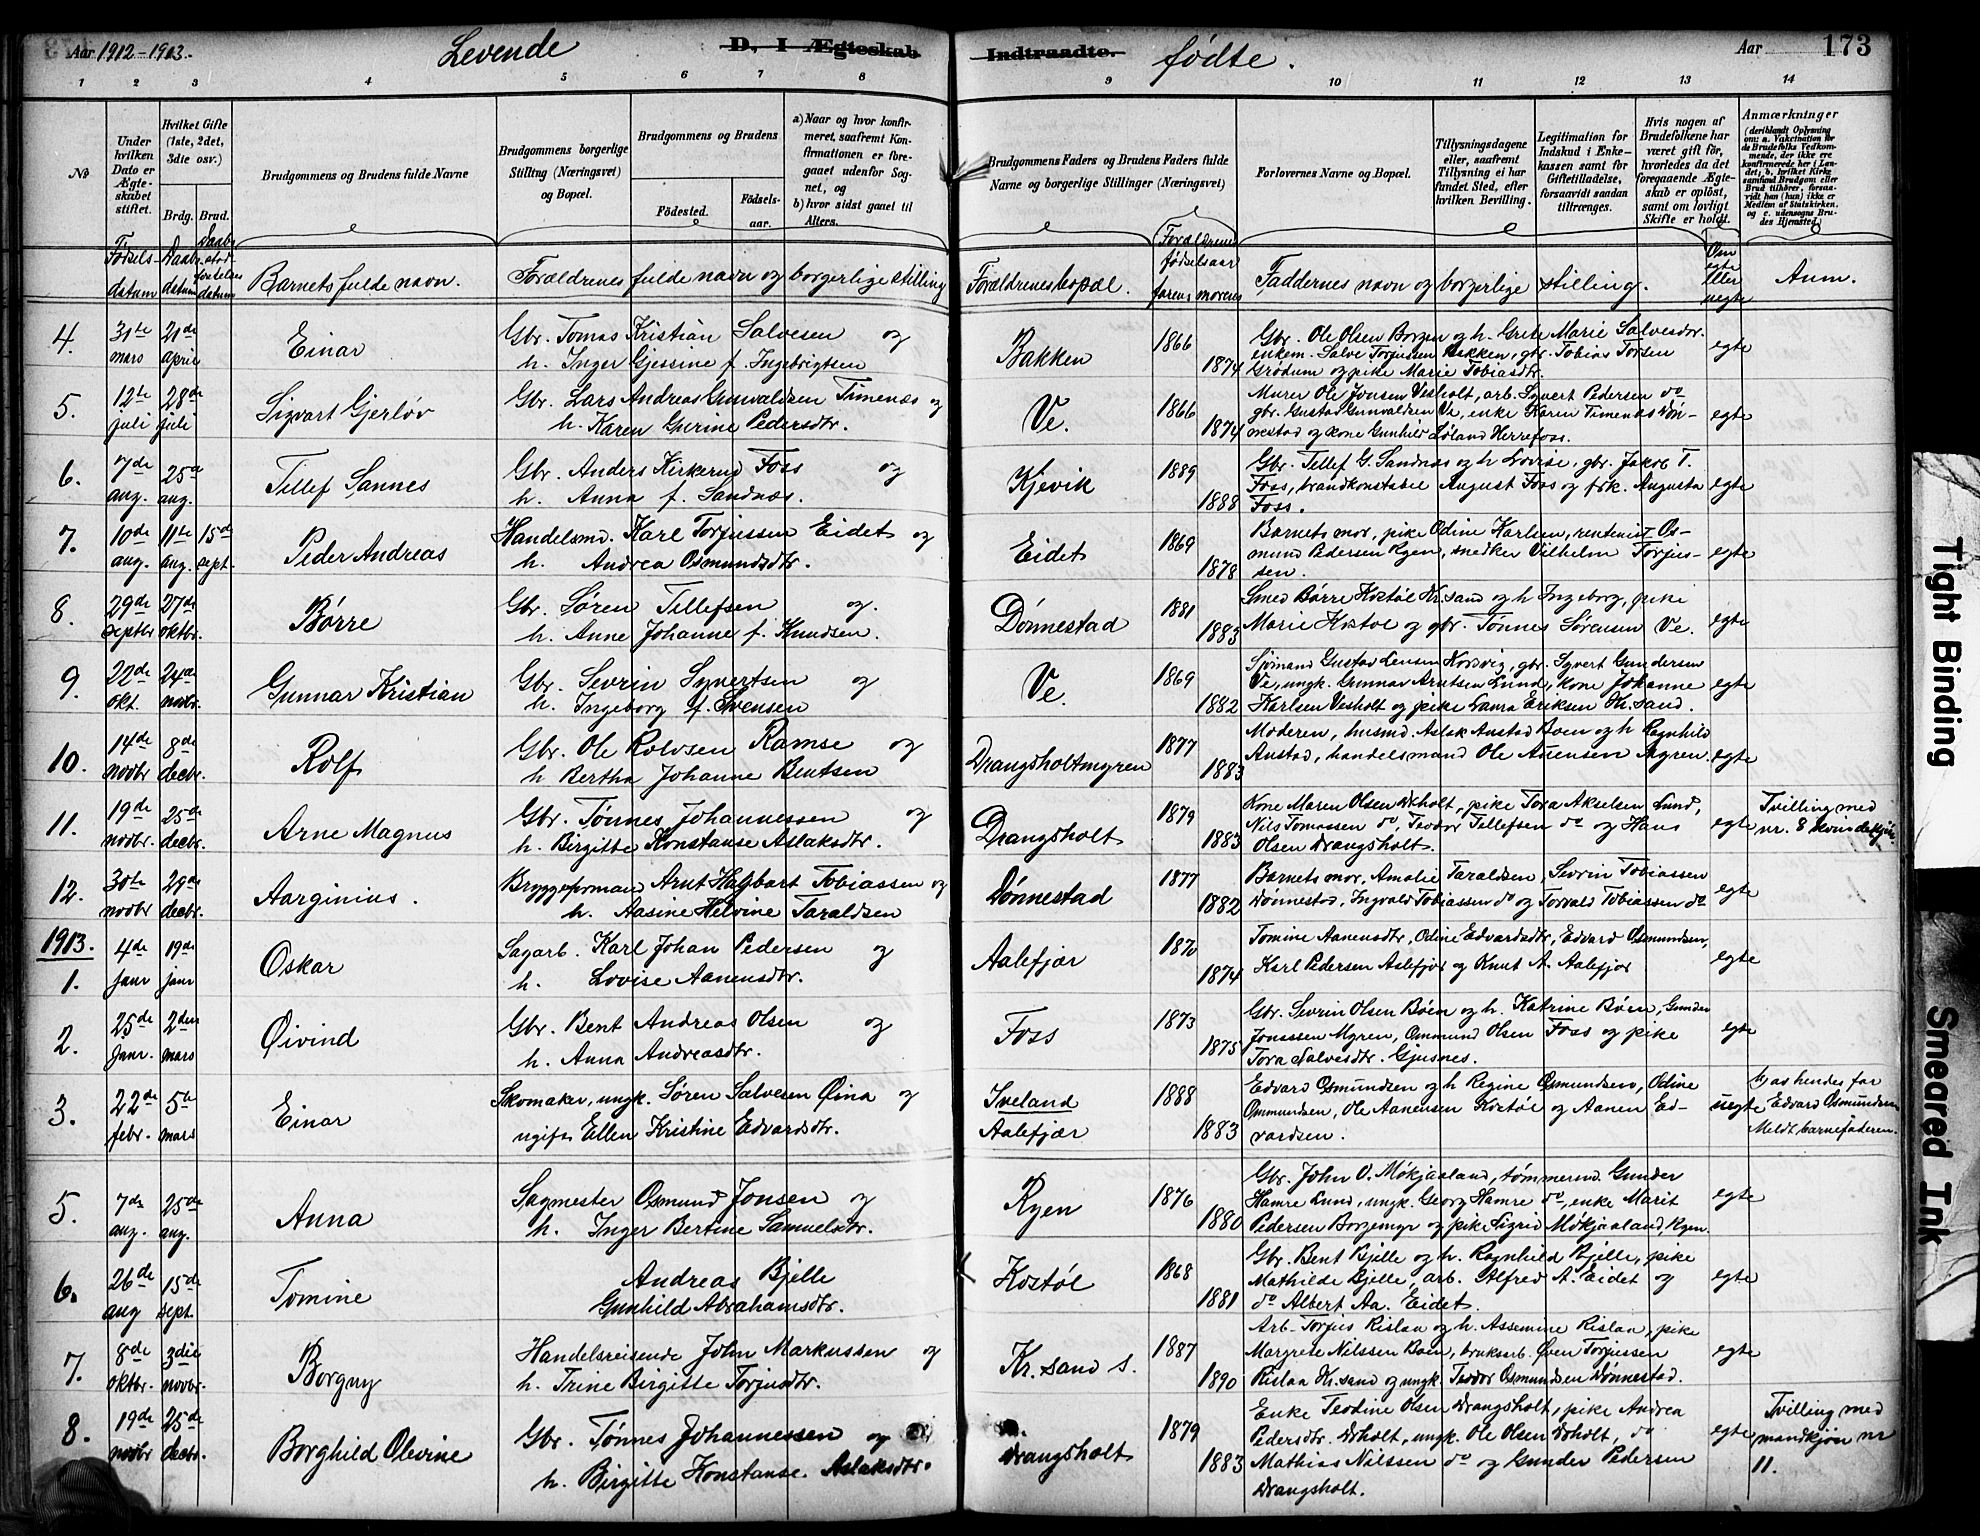 Aar 1912-1913. Levende D. I Ægteskab Indtraadte. fødte. Aar 173
1 2 3 4 5 6 7 8 9 10 11 12 13 14
№
Under hvilken Dato er Ægteskabet stiftet.
Hvilket Gifte (1ste, 2det, 3die osv.)
Brdg. Brud.
Brudgommens og Brudens fulde Navne
Brudgommens borgerlige Stilling (Næringsvei) og Bopæl.
Brudgommens og Brudens
Fødested. Fødselsaar.
a) Naar og hvor konfirmeret, saafremt Konfirmationen er foregaaet udenfor Sognet, og
b) hvor sidst gaaet til Alters.
Brudgommens Faders og Brudens Faders fulde Navne og borgerlige Stillinger (Næringsvei)
Forlovernes Navne og Bopæl.
Tillysningsdagene eller, saafremt Tillysning ei har fundet Sted, efter hvilken Bevilling.
Legitimation for Indskud i Enkekassen samt for Giftetilladelse, forsaavidt saadan tiltrænges.
Hvis nogen af Brudefolkene har været gift før, hvorledes da det foregaaende Ægteskab er opløst, samt om lovligt Skifte er holdt.
Anmærkninger
(deriblandt Oplysning om: a. Vakcination for de Brudefolks Vedkommende, der ikke ere konfirmerede her i Landet; b. hvilket Kirkesamfund Brudgom eller Brud tilhører, forsaavidt han (hun) ikke er Medlem af Statskirken, og c. udensogns Brudes Hjemsted.)
Fødselsdatum Daabsdatum Daabsstadfæstelses datum Barnets fulde navn. Forældrenes fulde navn og borgerlige stilling Forældrenes bopæl. Forældrenes fødselsaar farens morens Faddernes navn og borgerlige stilling. Om egte eller uegte Anm.
4. 31te mars 21de april Einar
Gbr. Tomas Kristian Salvesen og
h. Inger Gjessine f. Ingebrigtsen
Bakken 1866 1874
Gbr. Ole Olsen Borgen og h. Grete Marie Salvesdtr.
enkem. Salve Torjussen Bakken, gbr. Tobias Torsen
Grødum og pike Marie Tobiasdtr.
egte
5. 12te juli 28de juli Sigvart Gjerløv
Gbr. Lars Andreas Gunvaldsen Timenæs og
h. Karen Gurine Pedersdtr.
Ve. 1866 1874
Murer Ole Jonsen Vesholt, arb. Syvert Pedersen do
gbr. Gustav Gunvaldsen Ve, enke Karen Timenæs Døn-
nestad og kone Gunhild Loland Herrefoss.
egte
6. 7de aug. 25de aug. Tellef Sannes
Gbr. Anders Kirkerud Foss og
h. Anna f. Sandnæs.
Kjevik 1889 1888
Gbr. Tellef G. Sandnæs og h. Lovise, gbr. Jakob T.
Foss, brandkonstabel August Foss og frk. Augusta
Foss.
egte
7. 10de aug. 11te aug. 15de sept. Peder Andreas
Handelsmd. Karl Torjussen Eidet og
h. Andrea Osmundsdtr.
Eidet 1869 1878
Barnets mor, pike Odine Karlsen, rentenist Os-
mund Pedersen Ryen, snedker Vilhelm Torjus-
sen.
egte
8. 29de septbr 27de oktbr. Børre
Gbr. Søren Tellefsen og.
h. Anne Johanne f. Knudsen.
Dønnestad 1881 1883
Smed Børre Kostøl Kr.sand og h Ingeborg, pike
Marie Kostøl og gbr. Tønnes Sørensen Ve.
egte
9. 22de okt. 24de novbr. Gunnar Kristian
Gbr. Sevrin Syvertsen og
h. Ingeborg f. Svensen
Ve. 1869 1882
Sjømand Gustav Jensen Kosvig, gbr. Syvert Gundersen
Ve, ungk. Gunnar Arntsen Lund, kone Johanne
Karlsen Vesholt og pike Laura Eriksen Kr.sand.
egte
10. 14de novbr 8de decbr. Rolf
Gbr. Ole Rolvsen Ramse og
h Bertha Johanne Bentsen
Drangsholtmyren 1877 1883
Moderen, husmd. Aslak Austad Boen og h Ragnhild
Austad, handelsmand Ole Asensen Myren.
egte
11. 19de novbr. 25de decbr. Arne Magnus
Gbr. Tønnes Johannessen og
h. Birgitte Konstanse Aslaksdtr.
Drangsholt 1879 1883
Kone Maren Olsen Drholt, pike Tora Akselsen Lund,
Nils Tomassen do, Teodor Tellefsen do og Hans
Olsen Drangsholt.
egte
Tvilling med
nr. 8 kvindekjøn.
12. 30te novbr 29de decbr. Aarginius.
Bryggeforman Arnt Hagbart Tobiassen og
h. Aasine Helvine Taraldsen
Dønnestad 1877 1882
Barnets mor, Amalie Taraldsen, Sevrin Tobiassen
Dønnestad, Ingvald Tobiassen do og Torvald Tobiassen do
egte
1913.
1. 4de janr 19de janr Oskar
Sagarb. Karl Johan Pedersen og
h. Lovise Aanensdtr.
Aalefjær 1870 1874
Tomine Aanensdtr, Odine Edvardsdtr, Edvard Osmundsen,
Karl Pedersen Aalefjær og Knut A. Aalefjær
egte
2. 25de janr. 2den mars Øivind
Gbr. Bent Andreas Olsen og
h. Anna Andreasdtr.
Foss 1873 1875
Gbr. Sevrin Olsen Bøen og h. Katrine Bøen, Gunder
Jonsssen Myren, Osmund Olsen Foss og pike
Tora Salvesdtr. Gjusnes.
egte
3. 22de febr. 5te mars Einar
Skomaker, ungk. Søren Salvesen Øina og
ugift Ellen Kristine Edvardsdtr.
Iveland Aalefjær 1888 1883
Edvard Osmundsen og h Regine Osmundsen, Odine
Osmundsen, Ole Aanensen Kostøl og Aanen Ed-
vardsen.
uegte
av hendes far
Edvard Osmundsen
Meldt barnefaderen.
5. 7de aug. 25de aug. Anna
Sagmester Osmund Jonsen og
h. Inger Bertine Samuelsdtr.
Ryen 1876 1880
Gbr. John O. Møkjaaland, tømmermd. Gunder
Hamre Lund, ungk. Georg Hamre do, enke Marit
Pedersen Borgemyr og pike Sigrid Møkjaaland, Ryen.
egte
6. 26de aug 15de sept. Tomine
Andreas Bjelle
Gunhild Abrahamsdtr.
Kostøl 1868 1881
Gbr. Bent Bjelle og h. Ragnhild Bjelle, pike
Mathilde Bjelle, arb. Alfred A. Eidet og
do Albert Aa. Eidet.
egte
7. 8de oktbr. 3die novbr. Borgny
Handelsreisende John Markussen og
h. Trine Birgitte Torjusdtr.
Kr.sand S. 1887 1890
Arb. Torjus Rislaa og h. Assemine Rislaa, pike
Margrete Nilssen Boen, bruksarb. Øven Torjussen
Rislaa Kr.sand og ungk. Teodor Osmundsen Dønnestad.
egte
8. 19de novbr 25de decbr. Borghild Olevine
Gbr. Tønnes Johannessen og
h. Birgitte Konstanse Aslaksdtr.
Drangsholt 1879 1883
Enke Teodine Olsen Drangsholt, pike Andrea
Pedersdtr. Drholt, ungk. Ole Olsen Drholt, do
Mathias Nilssen do og Gunder Pedersen
Drangsholt.
egte
Tvilling med
mandkjøn nr
11.
Tight Binding
Smeared Ink